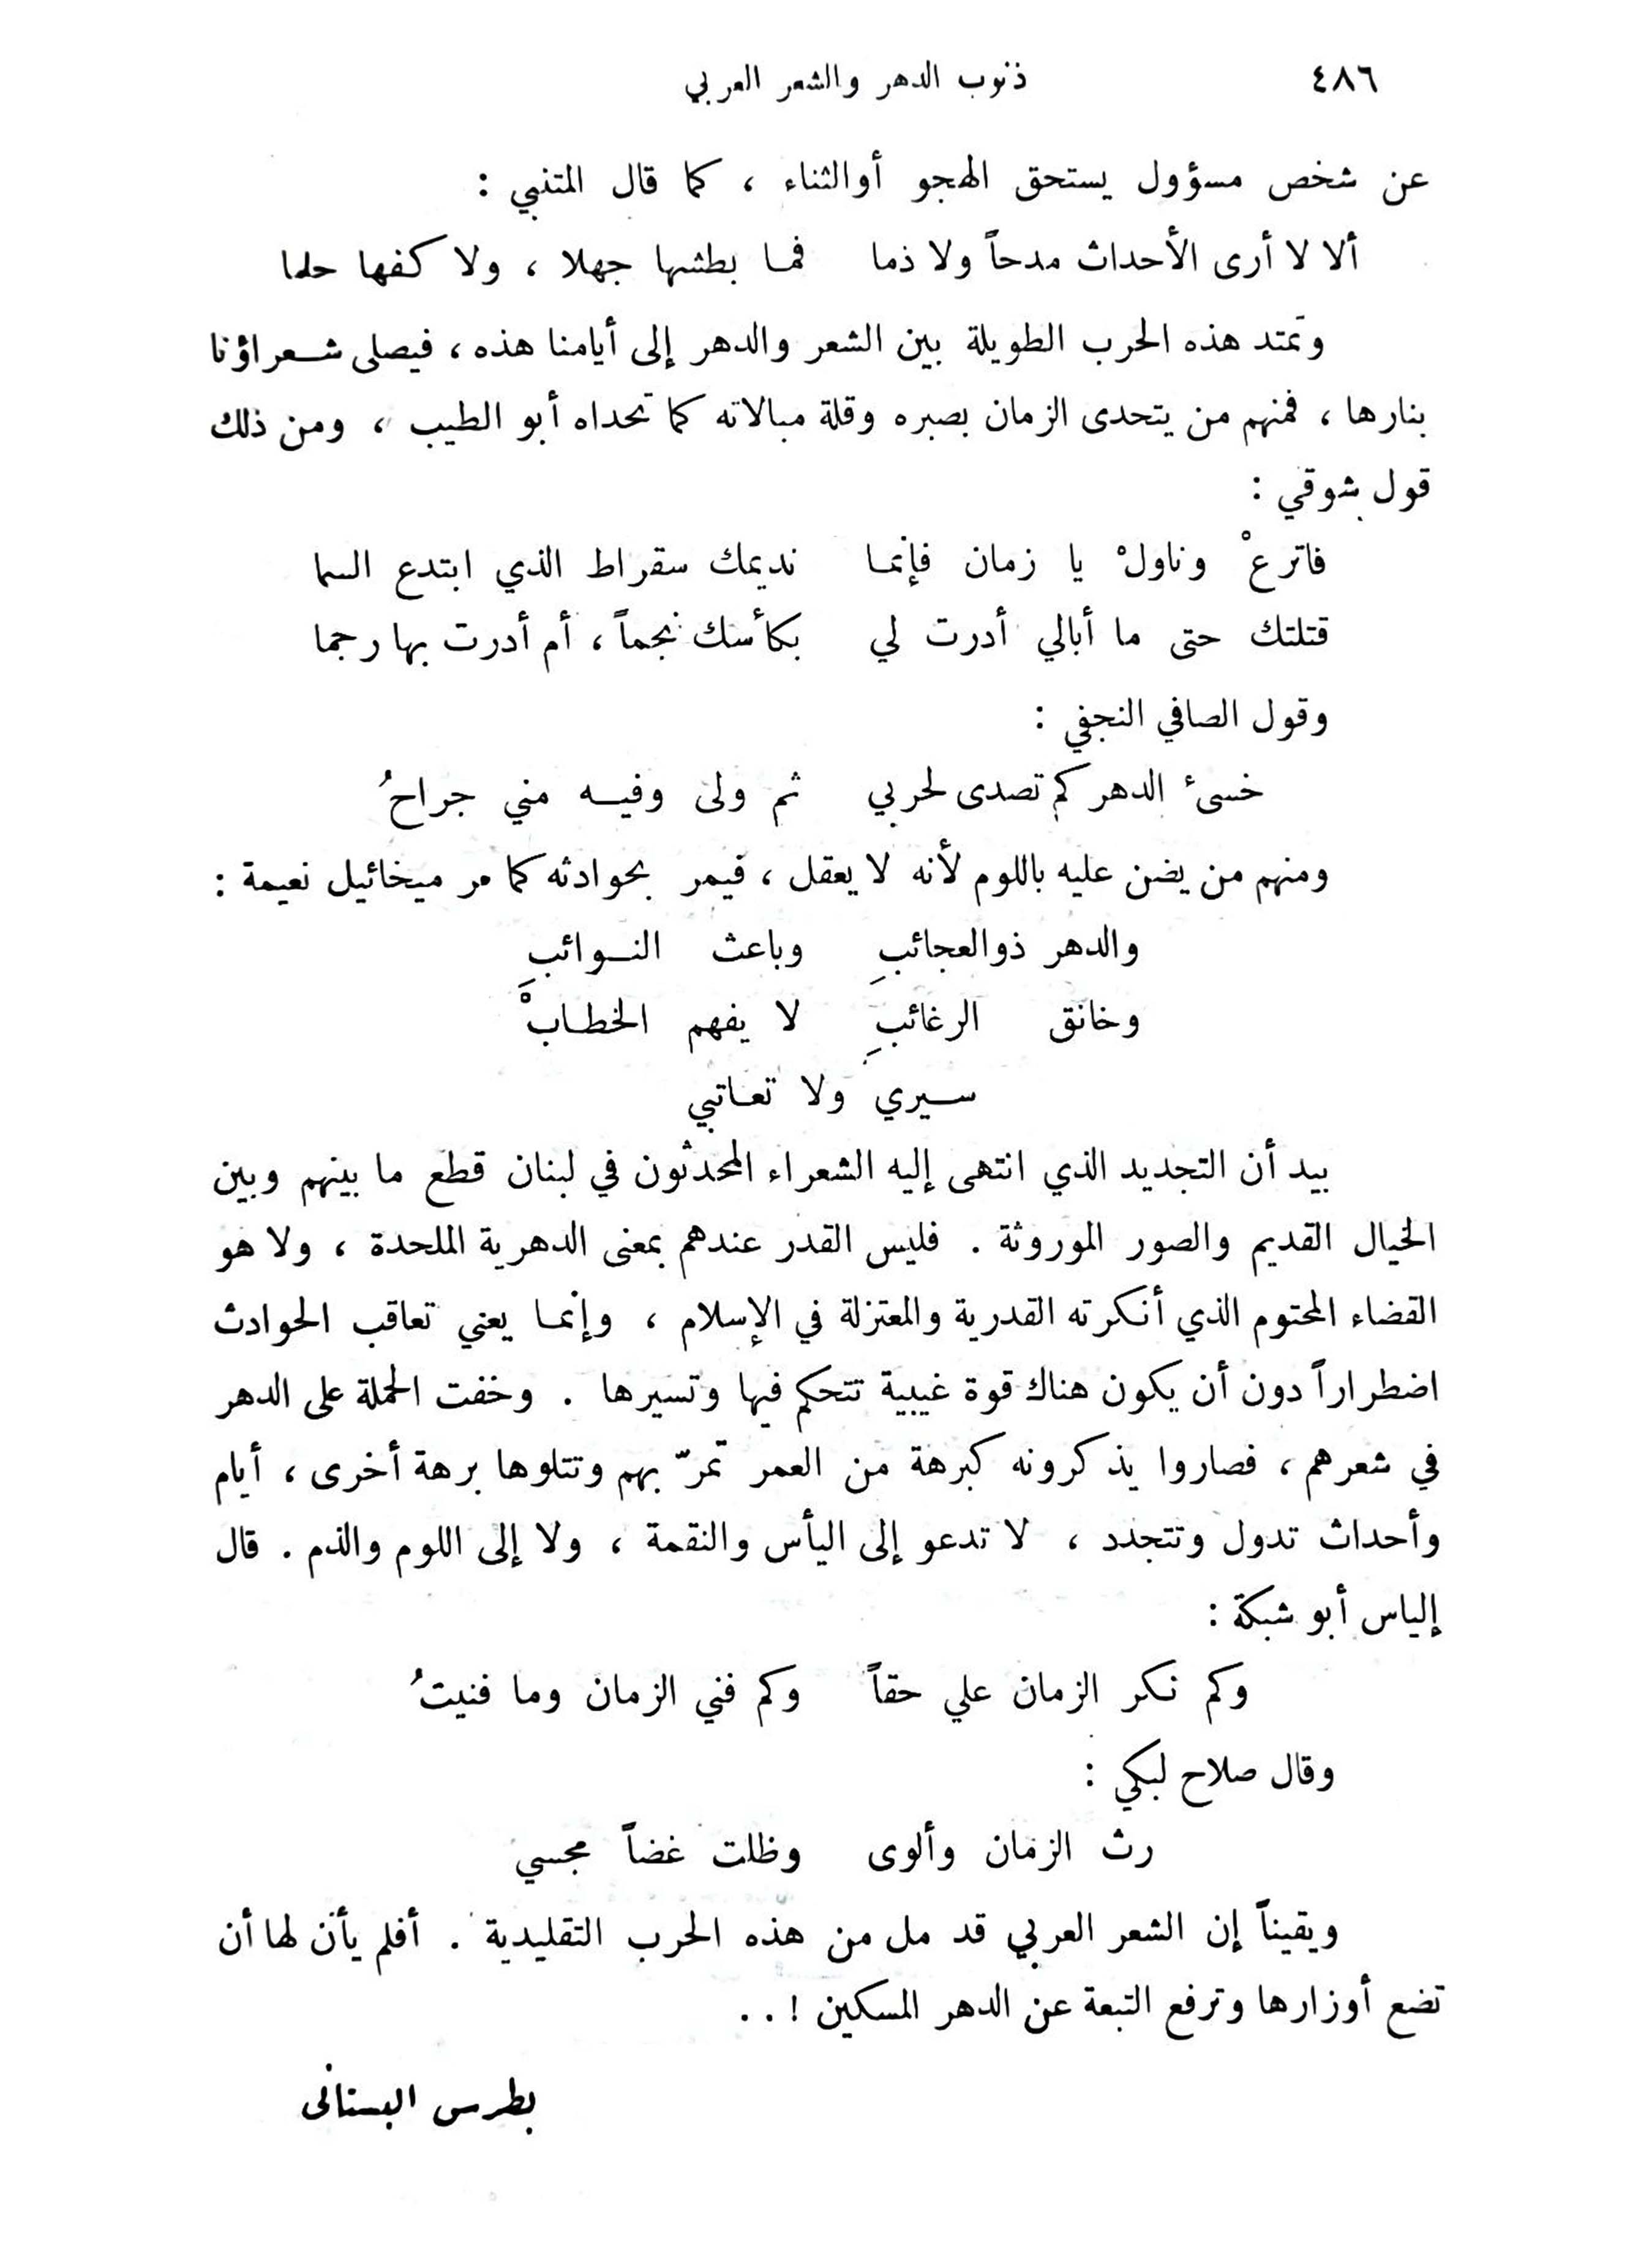 ٤٨٦ ذنوب الدهر والشعر العربي
عن شخص مسؤول يستحق الهجو أوالثناء ، كما قال المتنبي :
ألا لا أرى الأحداث مدحاً ولا ذما فما بطشها جهلا ، ولا كفها حلما
وتمتد هذه الحرب الطويلة بين الشعر والدهر إلى أيامنا هذه ، فيصلى شعراؤنا
بنارها ، فمنهم من يتحدى الزمان بصبره وقلة مبالاته كما تحداه أبو الطيب ، ومن ذلك
قول شوقي :
فاترعْ وناولْ يا زمان فإنما نديمك سقراط الذي ابتدع السما
قتلتك حتى ما أبالي أدرت لي بكأسك نجماً ، أم أدرت بها رجما
وقول الصافي النجفي :
خسىء الدهر كم تصدى لحربي ثم ولى وفيه مني جراحُ
ومنهم من يضن عليه باللوم لأنه لا يعقل ، فيمر بحوادثه كما مر ميخائيل نعيمة :
والدهر ذوالعجائبِ وباعث النوائبِ
وخانق الرغائبِ لا يفهم الخطابْ
سيري ولا تعاتبي
بيد أن التجديد الذي انتهى إليه الشعراء المحدثون في لبنان قطع ما بينهم وبين
الخيال القديم والصور الموروثة . فليس القدر عندهم بمعنى الدهرية الملحدة ، ولا هو
القضاء المحتوم الذي أنكرته القدرية والمعتزلة في الإسلام ، وإنما يعني تعاقب الحوادث
اضطراراً دون أن يكون هناك قوة غيبية تتحكم فيها وتسيرها . وخفت الحملة على الدهر
في شعرهم ، فصاروا يذكرونه كبرهة من العمر تمرّ بهم وتتلوها برهة أخرى ، أيام
وأحداث تدول وتتجدد ، لا تدعو إلى اليأس والنقمة ، ولا إلى اللوم والذم . قال
إلياس أبو شبكة :
وكم نكر الزمان علي حقاً وكم فني الزمان وما فنيتُ
وقال صلاح لبكي :
رث الزمان وألوى وظلت غضاً مجسي
ويقيناً إن الشعر العربي قد مل من هذه الحرب التقليدية . أفلم يأن لها أن
تضع أوزارها وترفع التبعة عن الدهر المسكين ! . .
بطرس البستانى